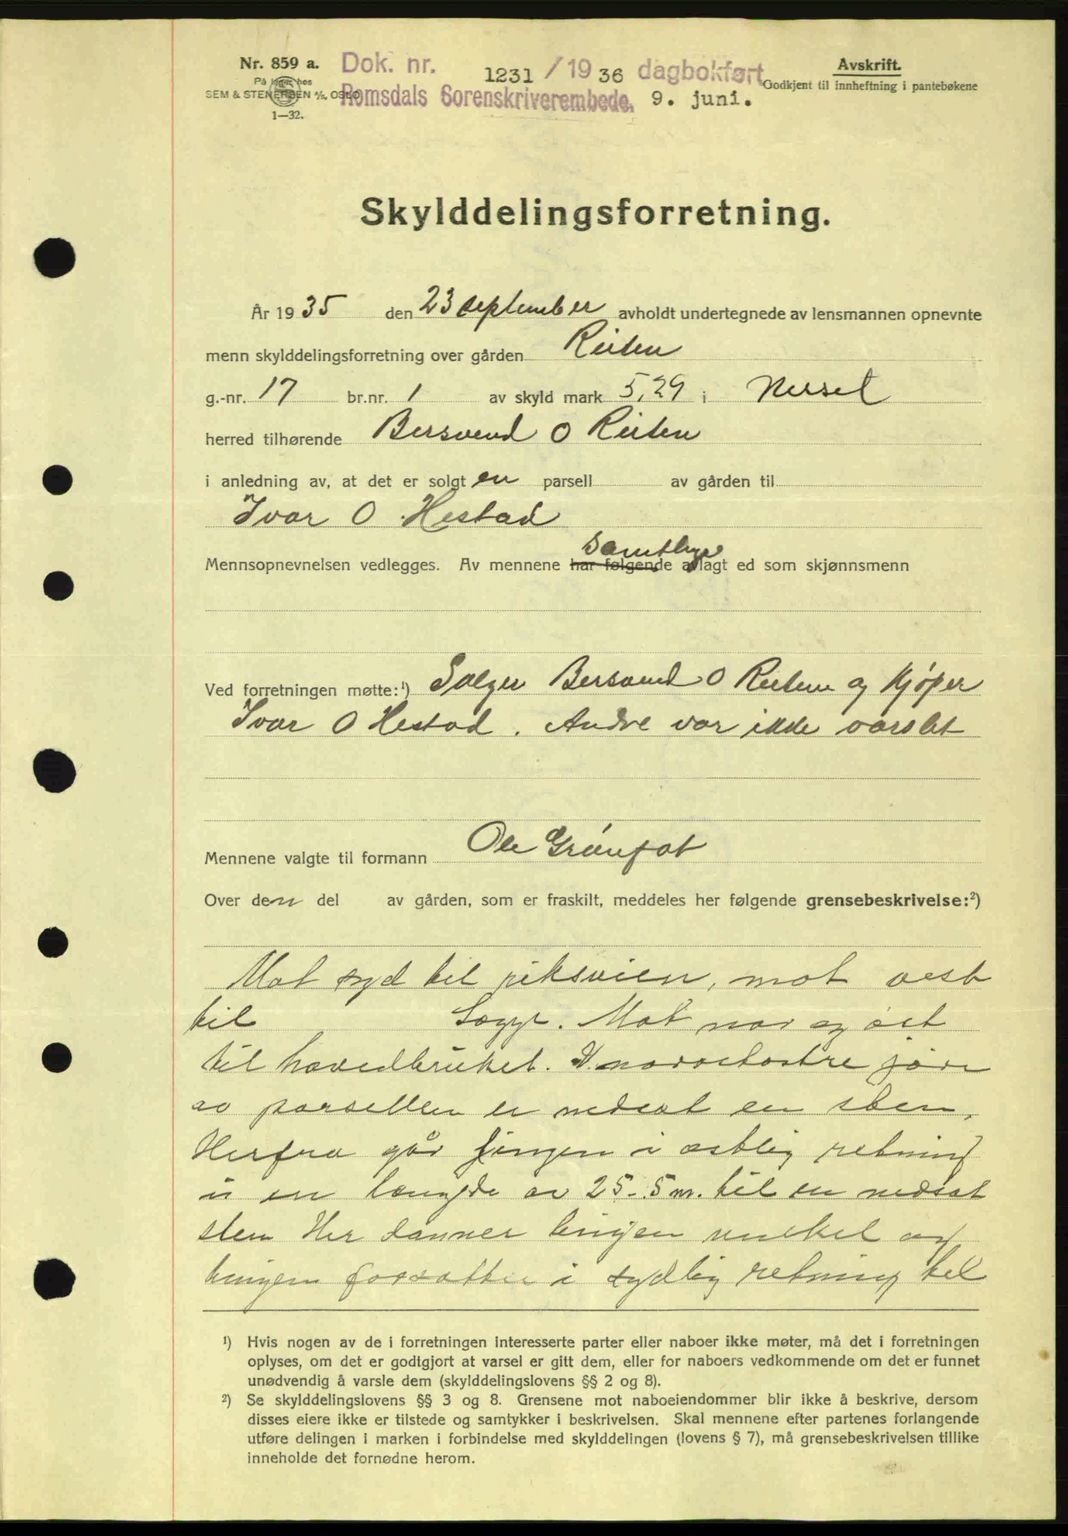 Nr. 859 a.
På lager hos
SEM & STENERSEN A/S, OSLO
1—32.
Dok. nr. 1231 / 19 36 dagbokført
Romsdals Sorenskriverembede, 9. juni.
Avskrift.
Godkjent til innheftning i pantebøkene
Skylddelingsforretning.
År 19 35 den 23 september avholdt undertegnede av lensmannen opnevnte
menn skylddelingsforretning over gården Reiten
g.-nr. 17 br.nr. 1 av skyld mark 5,29 i Nesset
herred tilhørende Bersvend O Reiten
i anledning av, at det er solgt en parsell av gården til
Ivar O Hestad
Mennsopnevnelsen vedlegges. Av mennene har følgende samtlige avlagt ed som skjønnsmenn
Ved forretningen møtte:¹) Selger Bersvend O Reiten og kjøper
Ivar O Hestad. Andre var ikke varslet
Mennene valgte til formann Ole Grønfat
Over den del av gården, som er fraskilt, meddeles her følgende grensebeskrivelse:²)
Mot syd til riksveien, mot vest
til Sogge. Mot nor og øst
til hovedbruket. I nordøstre jøre
av parsellen er nedsat en sten.
Herfra går lingen i østlig retning
i en længde av 25.5 m. til en nedsat
sten Her danner lingen vinkel og
lingen forsætter i sydlig retning til
¹) Hvis nogen av de i forretningen interesserte parter eller naboer ikke møter, må det i forretningen
oplyses, om det er godtgjort at varsel er gitt dem, eller for naboers vedkommende om det er funnet
unødvendig å varsle dem (skylddelingslovens §§ 2 og 8).
²) Se skylddelingslovens §§ 3 og 8. Grensene mot naboeiendommer blir ikke å beskrive, dersom
disses eiere ikke er tilstede og samtykker i beskrivelsen. Skal mennene efter partenes forlangende
utføre delingen i marken i forbindelse med skylddelingen (lovens § 7), må grensebeskrivelsen tillike
inneholde det fornødne herom.